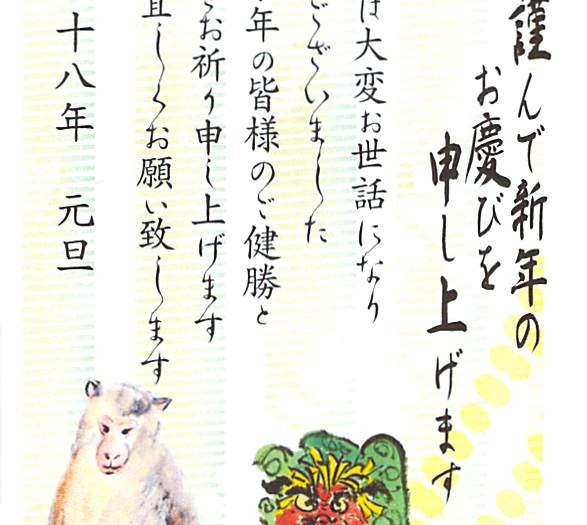 謹んで新年の
お慶びを
申し上げます
は大変お世話になり
ございました
年の皆様のご健勝と
お祈り申し上げます
宜しくお願い致します
十八年 元旦